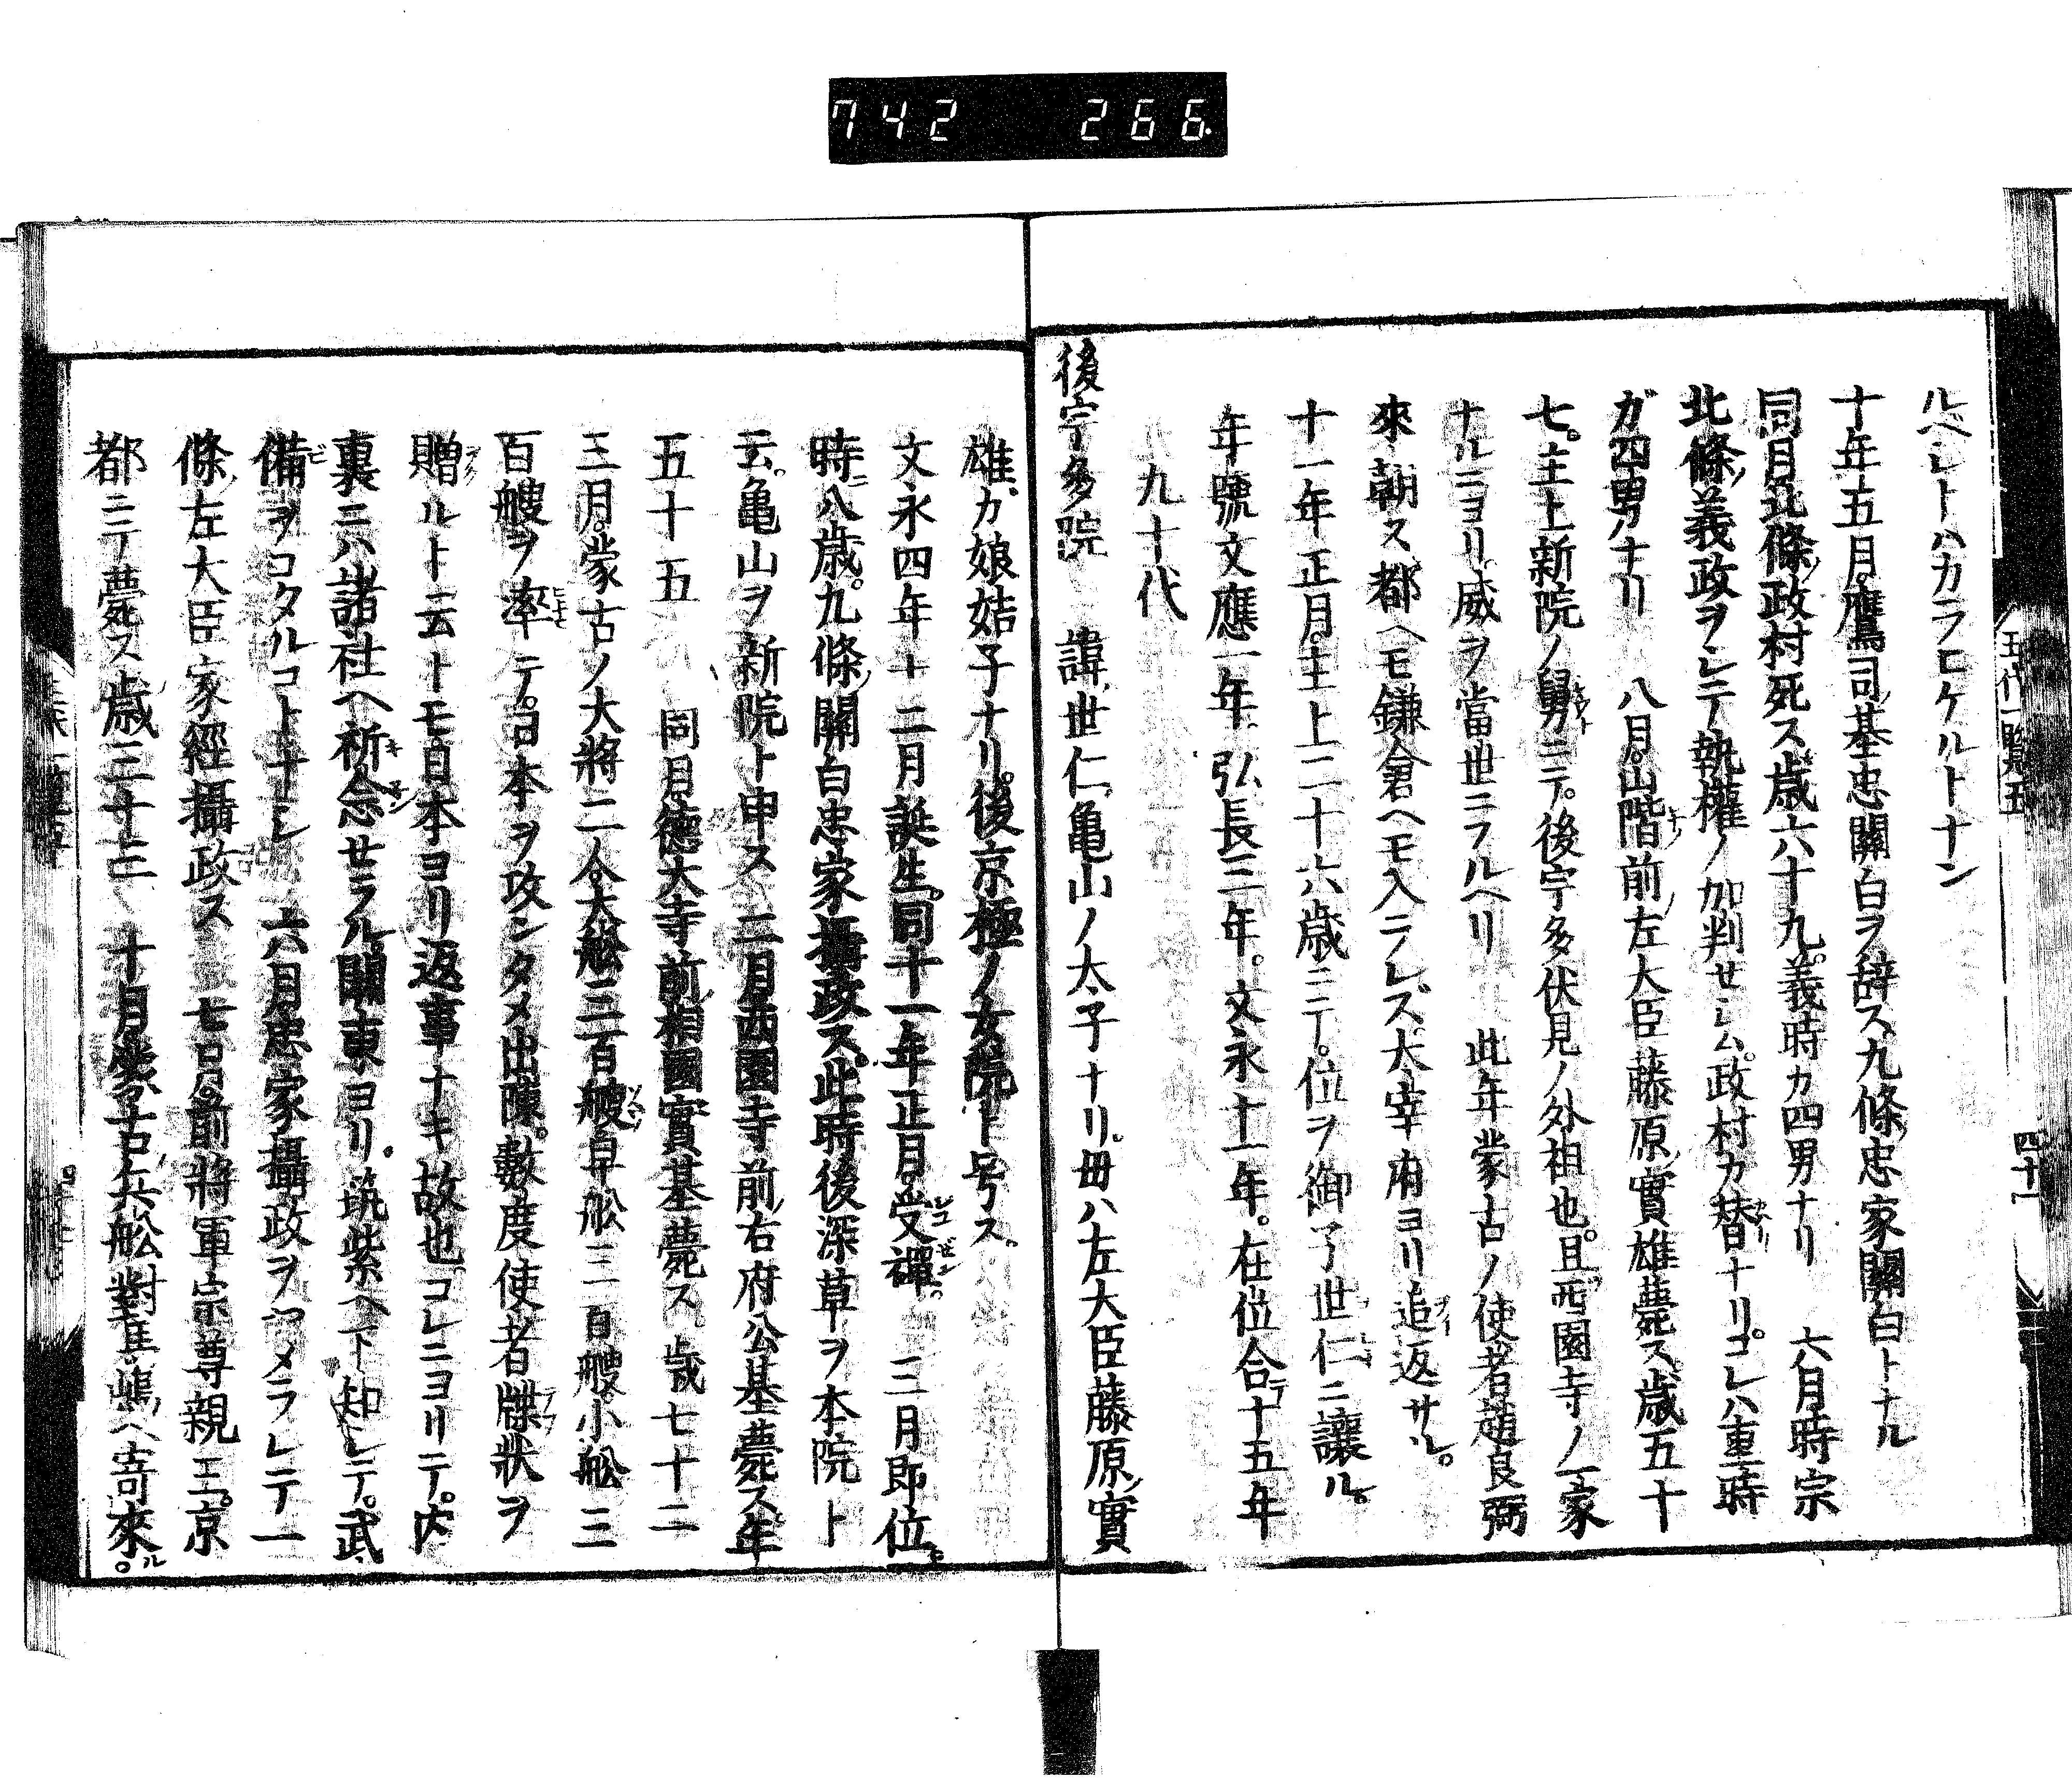 742 266
ルベシトハカラヒケルトナン
十年五月。鷹司基忠關白ヲ辞ス。九條忠家關白トナル
同月北條政村死ス歳六十九。義時カ四男ナリ 六月時宗
北條義政ヲシテ執權ノ加判セシム。政村カ替ナリ。コレハ重時
ガ四男ナリ 八月。山階前左大臣藤原實雄薨ス歳五十
七。主上新院ノ舅ニテ。後宇多伏見ノ外祖也。且西園寺ノ一家
ナルニヨリ。威ヲ當世ニフルヘリ 此年蒙古ノ使者趙良弼
來朝ス。都ヘモ鎌倉ヘモ入ラレズ。太宰府ヨリ追返サル。
十一年正月。主上二十六歳ニテ。位ヲ御子世仁ニ讓ル。
年號文應一年。弘長三年。文永十一年。在位合テ十五年
九十代
後宇多院 諱世仁。亀山ノ太子ナリ。母ハ左大臣藤原ノ實
雄カ娘姞子ナリ。後京極ノ女院ト号ス。
文永四年十二月誕生。同十一年正月。受禪。三月即位。
時ニ八歳。九條關白忠家攝政ス。此時後深草ヲ本院ト
云。亀山ヲ新院ト申ス 二月西園寺前右府公基薨ス年
五十五 同月德大寺前相國實基薨ス。歳七十二
三月。蒙古ノ大將二人。大舩三百艘早舩三百艘。小舩三
百艘ヲ率テ。日本ヲ攻ンタメ出陳。數度使者牒狀ヲ
贈ルト云トモ。日本ヨリ返事ナキ故也。コレニヨリテ。内
裏ニハ諸社ヘ祈念セラル。關東ヨリ。筑紫ヘ下知シテ。武
備ヲコタルコトナシ 六月忠家攝政ヲヤメラレテ一
條左大臣家經攝政ス 七月。前將軍宗尊親王。京
都ニテ薨ス歳三十三 十月蒙古ノ兵舩對馬嶋ヘ寄來ル。
四十一